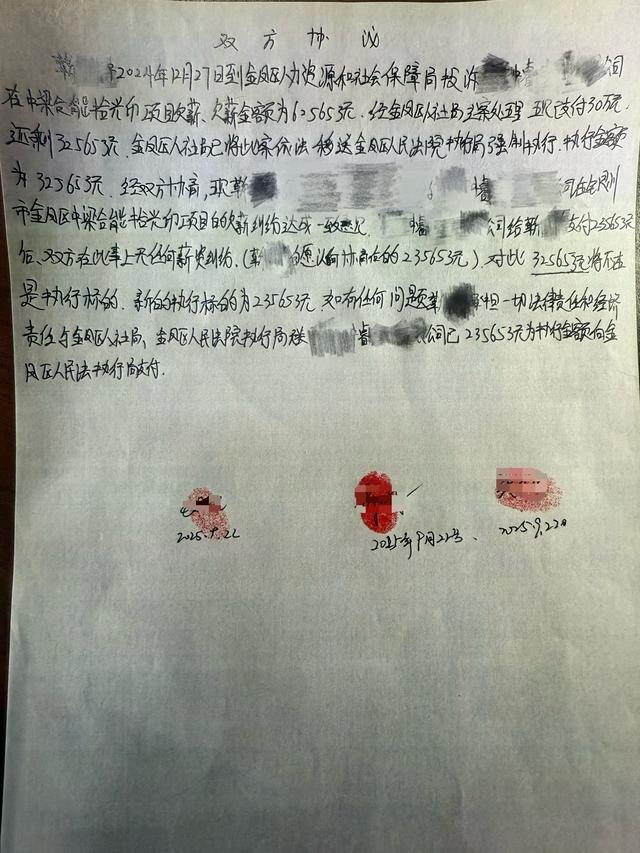 双方协议
2024年12月27日到金凤区人力资源和社会保障局投诉 公司
在中梁合能拾光印项目欠薪、欠薪金额为625653元. 经金凤区人社局立案处理 现已支付30万元.
还剩325653元. 金凤区人社局已将此案依法移送金凤区人民法院执行局强制执行. 执行金额
为325653元. 经双方协商, 现靳 睿 公司在银川
市金凤区中梁合能拾光印项目的欠薪纠纷达成一致意见. 睿 公司给靳 支付235653元
后、双方在此事上无任何薪资纠纷. (靳 愿认可协商后的235653元). 对此325653元将不在
是执行标的. 新的执行标的为235653元. 如有任何问题 承担一切法律责任和经济
责任与金凤区人社局、金凤区人民法院执行局 睿 公司已235653元为执行金额向金
凤区人民法执行局支付.
2025.9.22
2025年9月22号、
2025.9.22日